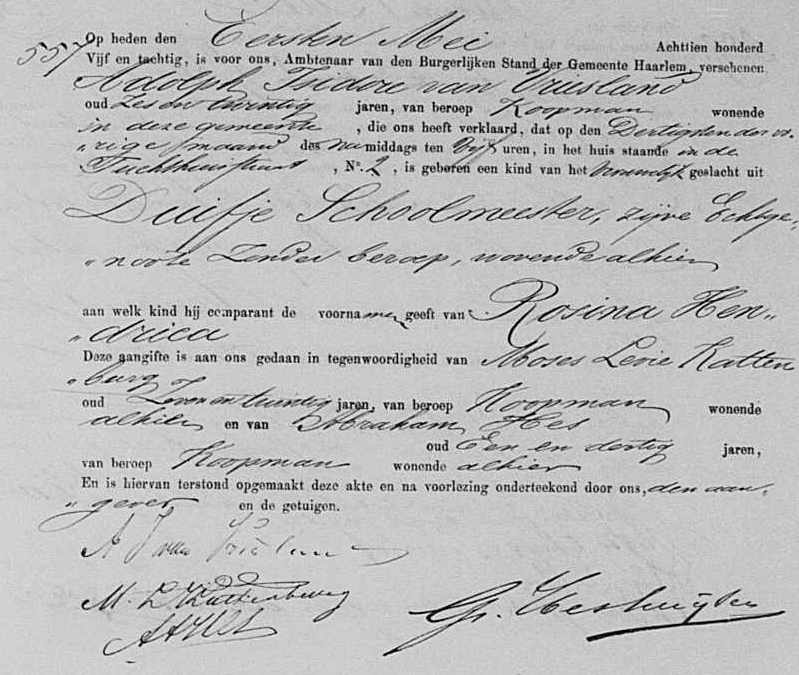 557
Op heden den Eersten Mei Achttien honderd
Vijf en tachtig, is voor ons, Ambtenaar van den Burgerlijken Stand der Gemeente Haarlem, verschenen
Adolph Isidore van Vriesland
oud Zes en twintig jaren, van beroep Koopman wonende
in deze gemeente, die ons heeft verklaard, dat op den Dertigsten der vo„
„rige maand des namiddags ten Vijf uren, in het huis staande in de
Tuchthuisstraat, No. 2, is geboren een kind van het Vrouwelijk geslacht uit
Duifje Schoolmeester, zijne Echtge„
„noote Zonder beroep, wonende alhier
aan welk kind hij comparant de voornamen geeft van Rosina Hen„
„drica
Deze aangifte is aan ons gedaan in tegenwoordigheid van Moses Levie Katten
„burg
oud Zeven en twintig jaren, van beroep Koopman wonende
alhier en van Abraham Hes
oud Een en dertig jaren,
van beroep Koopman wonende alhier
En is hiervan terstond opgemaakt deze akte en na voorlezing onderteekend door ons, den aan„
„gever en de getuigen.
A I van Vriesland
M. L Kattenburg
A Hes